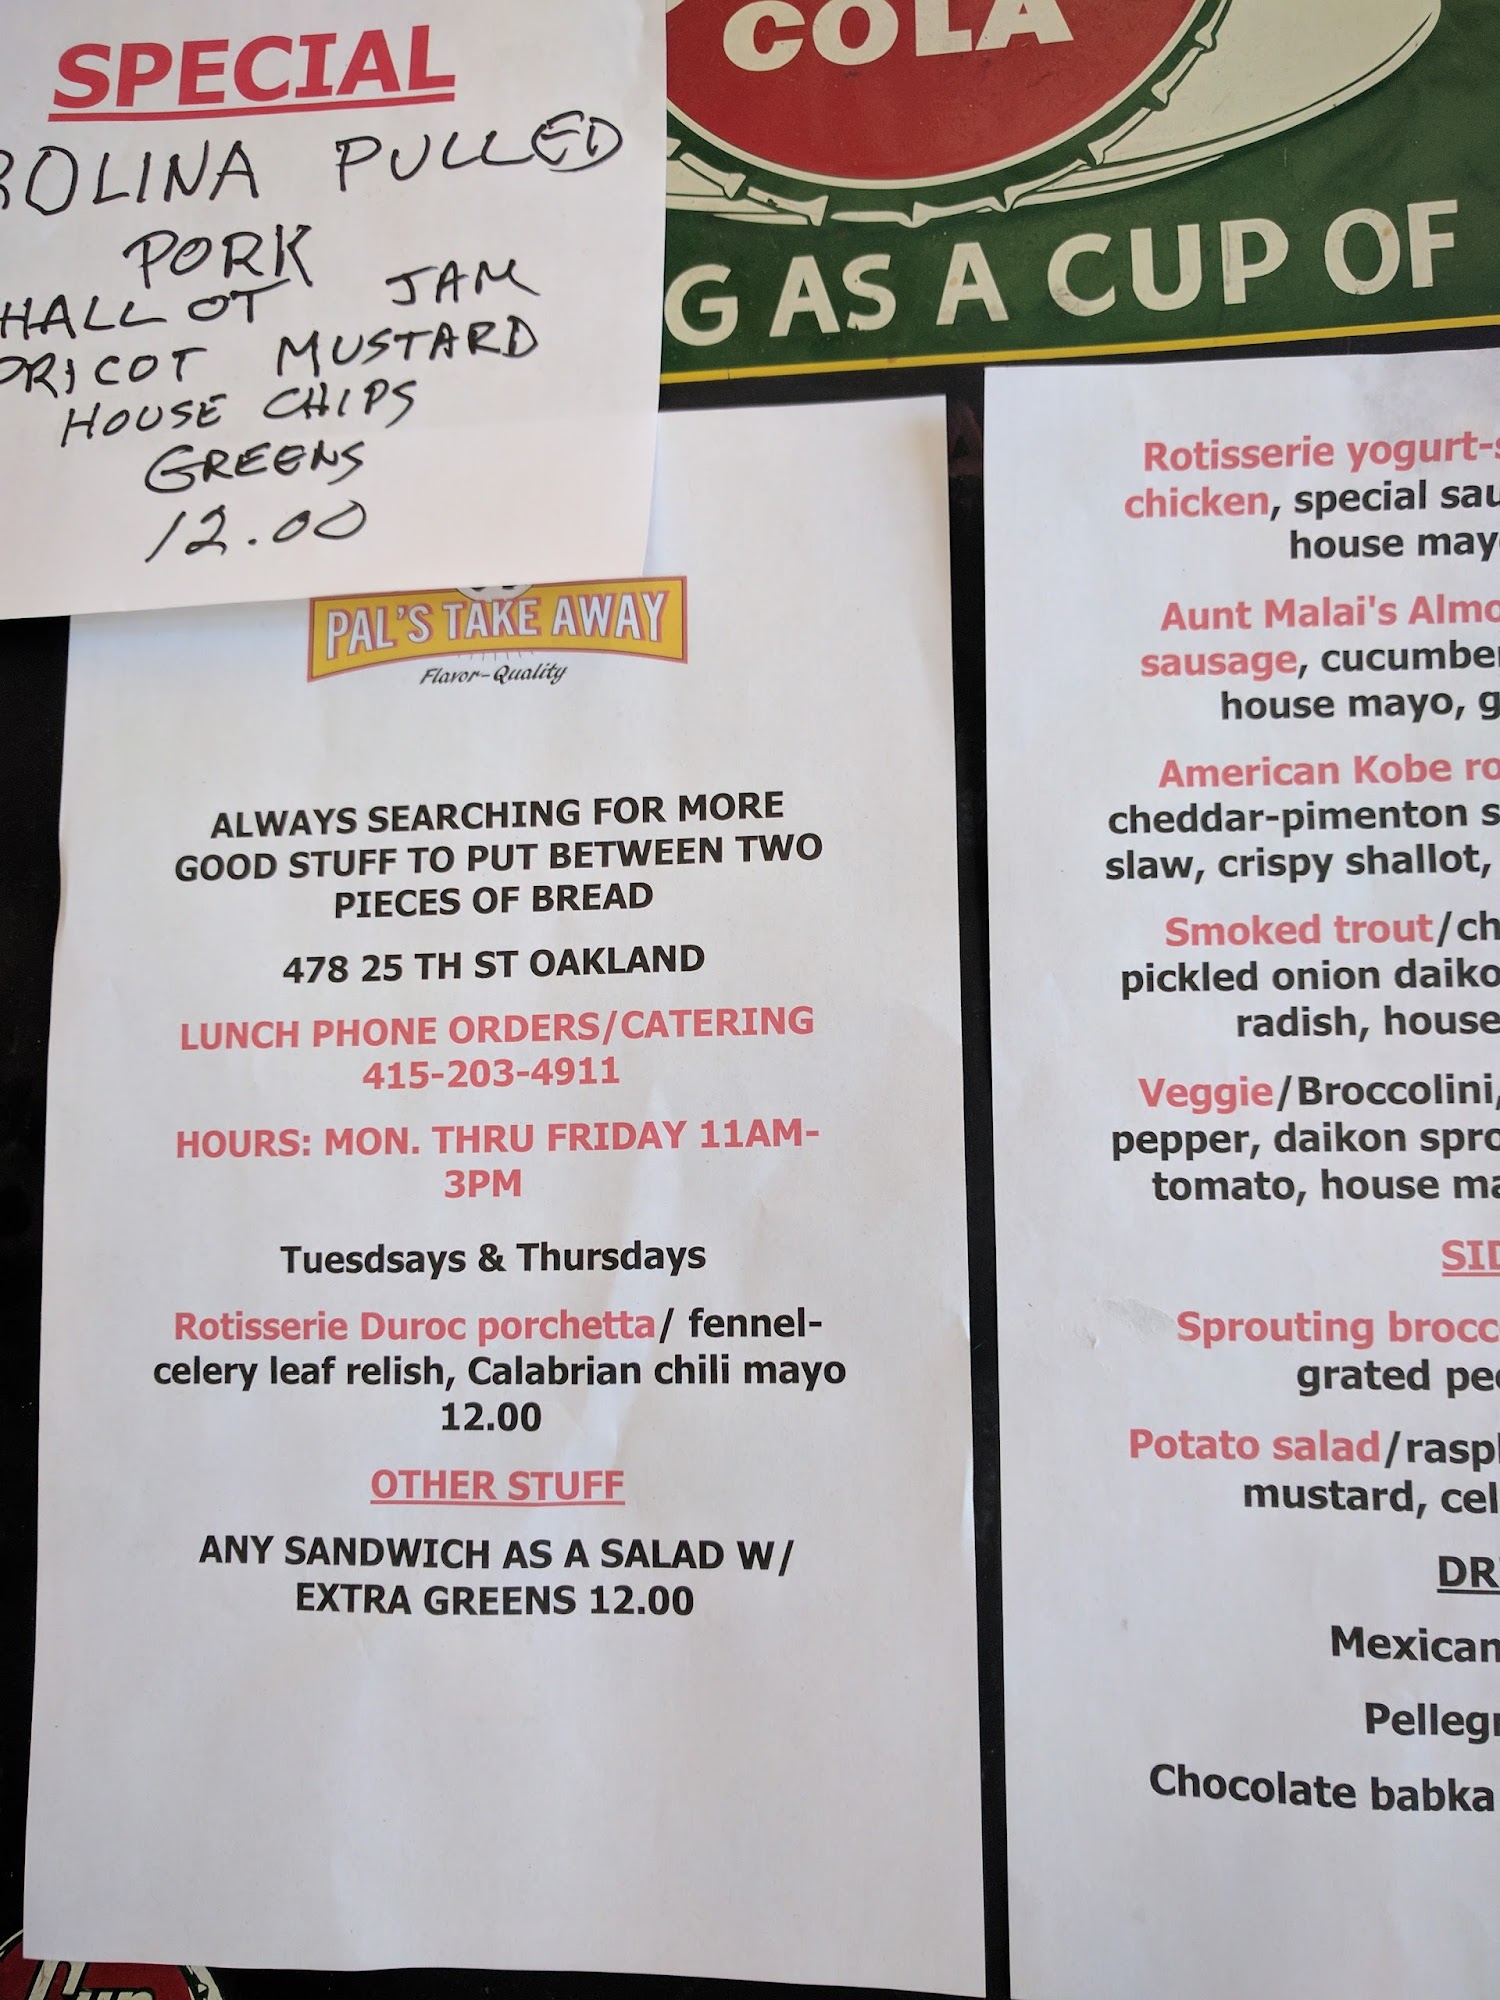 SPECIAL
ROLINA PULLED
PORK
HALLOT JAM
PRICOT MUSTARD
HOUSE CHIPS
GREENS
12.00
COLA
G AS A CUP OF
PAL'S TAKE AWAY
Flavor-Quality
ALWAYS SEARCHING FOR MORE
GOOD STUFF TO PUT BETWEEN TWO
PIECES OF BREAD
478 25 TH ST OAKLAND
LUNCH PHONE ORDERS/CATERING
415-203-4911
HOURS: MON. THRU FRIDAY 11AM-
3PM
Tuesdsays & Thursdays
Rotisserie Duroc porchetta/ fennel-
celery leaf relish, Calabrian chili mayo
12.00
OTHER STUFF
ANY SANDWICH AS A SALAD W/
EXTRA GREENS 12.00
Rotisserie yogurt-s
chicken, special sau
house mayo
Aunt Malai's Almo
sausage, cucumber
house mayo, g
American Kobe ro
cheddar-pimenton s
slaw, crispy shallot,
Smoked trout/ch
pickled onion daiko
radish, house
Veggie/Broccolini,
pepper, daikon spro
tomato, house ma
SID
Sprouting brocc
grated pec
Potato salad/rasp
mustard, cel
DR
Mexican
Pellegr
Chocolate babka